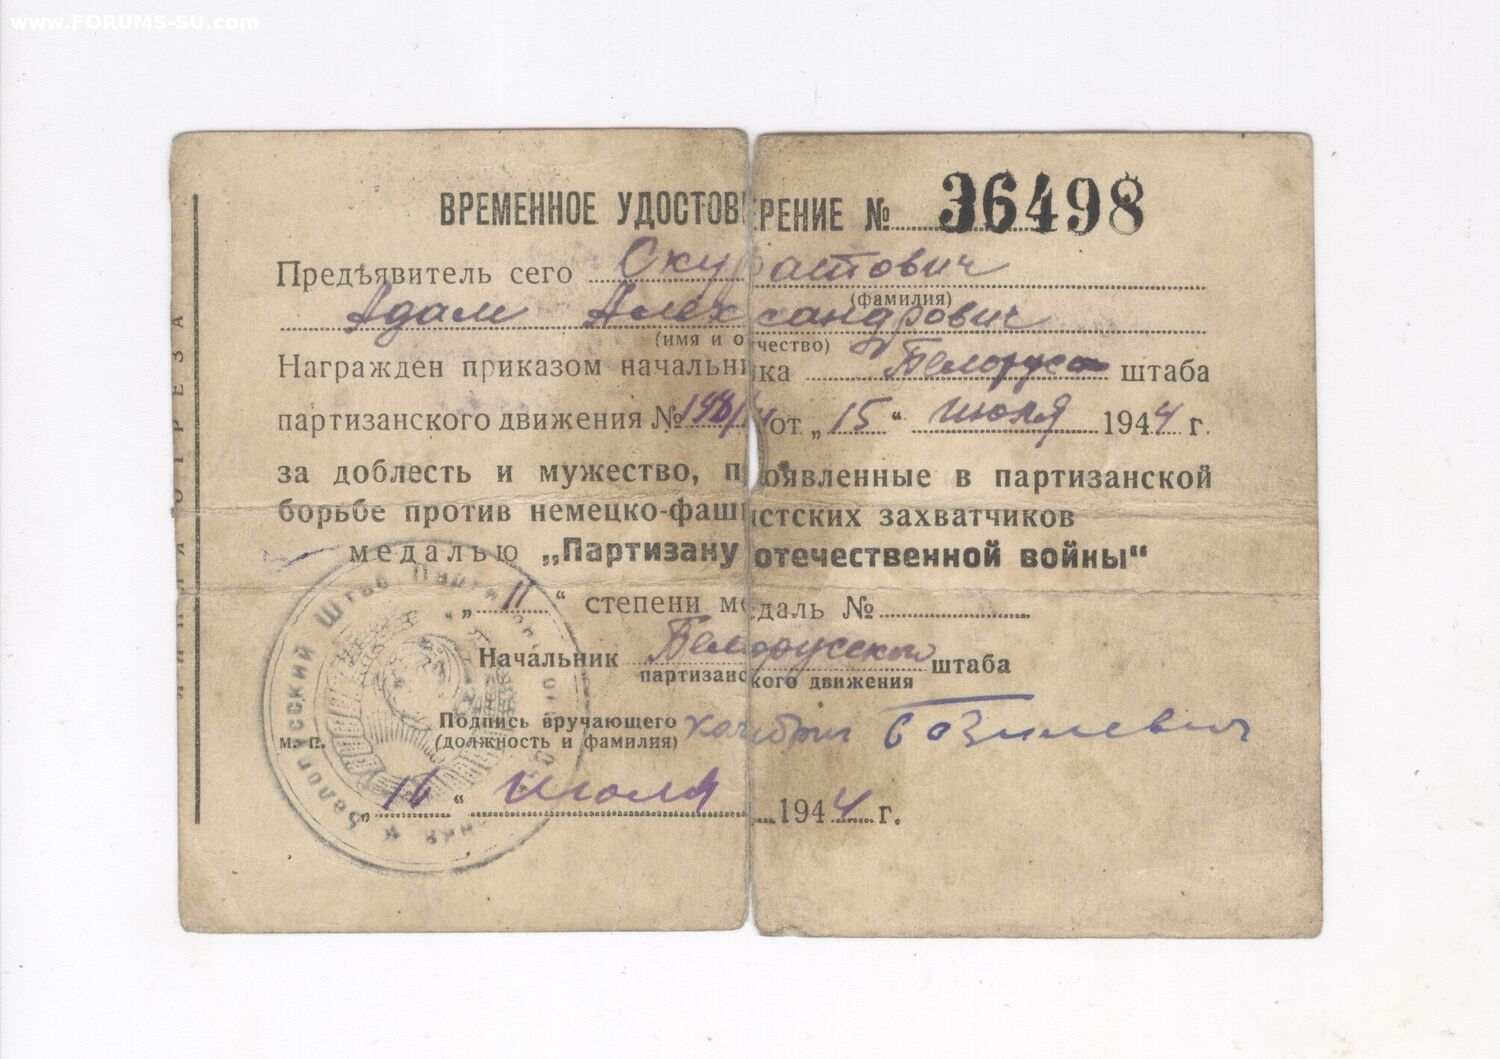 www.FORUMS-SU.com
ВРЕМЕННОЕ УДОСТОВЕРЕНИЕ № 36498
Предъявитель сего Скуратович
(фамилия)
Адам Александрович
(имя и отчество)
Награжден приказом начальника Белорус штаба
партизанского движения № от „15“ июля 1944 г.
за доблесть и мужество, проявленные в партизанской
борьбе против немецко-фашистских захватчиков
медалью „Партизану отечественной войны“
„II“ степени медаль №
Начальник Белорусского штаба
партизанского движения
Подпись вручающего
м. п. (должность и фамилия)
„16“ июля 1944 г.
Белорусский Штаб
ЛИНИЯ ОТРЕЗА